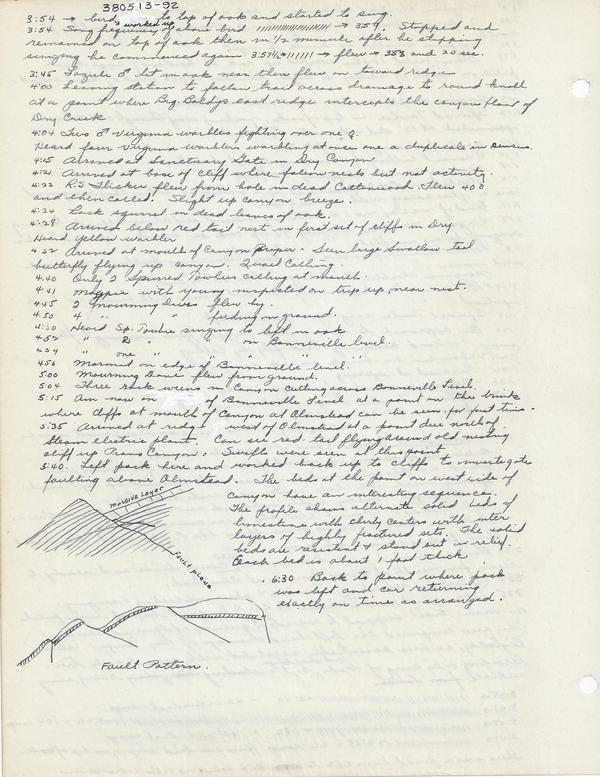 380513-92
3:54 → bird worked up to top of oak and started to sing.
3:54 Song frequency of above bird //////////////// → 354. Stopped and
remained on top of oak then in 1/2 minute after he stopping
singing he commenced again 3:57½ ////// → flew → 358 and 20 sec.
3:45 Lazuli ♂ lit in oak near then flew on toward ridge
4:00 Leaving station to follow trail across drainage to round knoll
at a point where Big Baldys east ridge intercepts the canyon floor of
Dry Creek
4:04 Two ♂ Virginia warblers fighting over one ♀.
Heard four Virginia warblers warbling at once one a duplicate in census.
4:15 Arrived at Sanctuary Gate in Dry Canyon
4:21 Arrived at base of cliff where falcon nests but not activity.
4:22 R.S. Flicker flew from hole in dead Cottonwood. Flew 400
and then called. Slight up canyon breeze.
4:24 Rock squirrel in dead leaves of oak.
4:28 Arrived below red tail nest in first set of cliffs in Dry.
Heard Yellow warbler
4:32 Arrived at mouth of Canyon Proper. Seen large Swallow tail
butterfly flying up canyon. Quail Calling.
4:40 Only 2 Spurred Towhees calling at mouth.
4:41 Magpie with young inspected on trip up, near nest.
4:45 2 Mourning Doves flew by.
4:50 4 " " feeding on ground.
4:50 Heard Sp. Towhee singing to left in oak
4:52 " 2 " on Bonneville level.
4:54 " one " " " "
4:56 Marmot on edge of "Bonneville" level.
5:00 Mourning Dove flew from ground.
5:04 Three rock wrens in Canyon cutting across Bonneville Level.
5:15 Am now on of Bonneville Level at a point on the brink
where cliffs at mouth of Canyon at Olmstead can be seen for first time.
5:35 Arrived at ridge west of Olmstead at a point due north of
Steam electric plant. Can see red-tail flying around old nesting
cliff up Provo Canyon. Swifts were seen at this point
5:40. Left pack here and worked back up to cliffs to investigate
faulting above Olmstead. The beds at the point on west side of
canyon have an interesting sequence.
The profile shows alternate solid beds of
limestone with cherty centers with inter
layers of highly fractured sets. The solid
beds are resistent & stand out in relief.
Each bed is about 1 foot thick
Massive Layer
Fault plane
6:30 Back to point where pack
was left and car returning
exactly on time as arranged.
Fault Pattern.